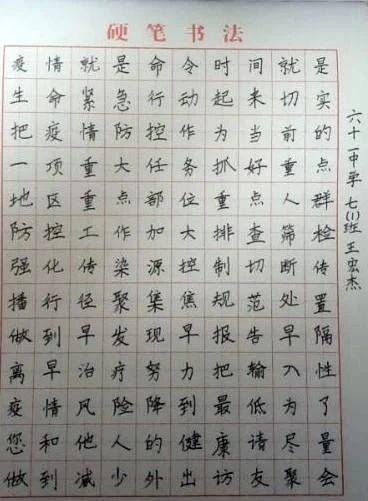 硬笔书法
疫情就是命令时间就是
生命紧急行动起来切实
把疫情防控作为当前的
一项重大任务抓好重点
地区重点部位重点人群
防控工作加大排查筛检
强化传染源控制切断传
播行径聚集焦规范处置
做到早发现早报告早隔
离早治疗努力把输入性
疫情风险降到最低为了
您和他人的健康请尽量
做到减少外出访友聚会
六十一中学七(1)班王宏杰